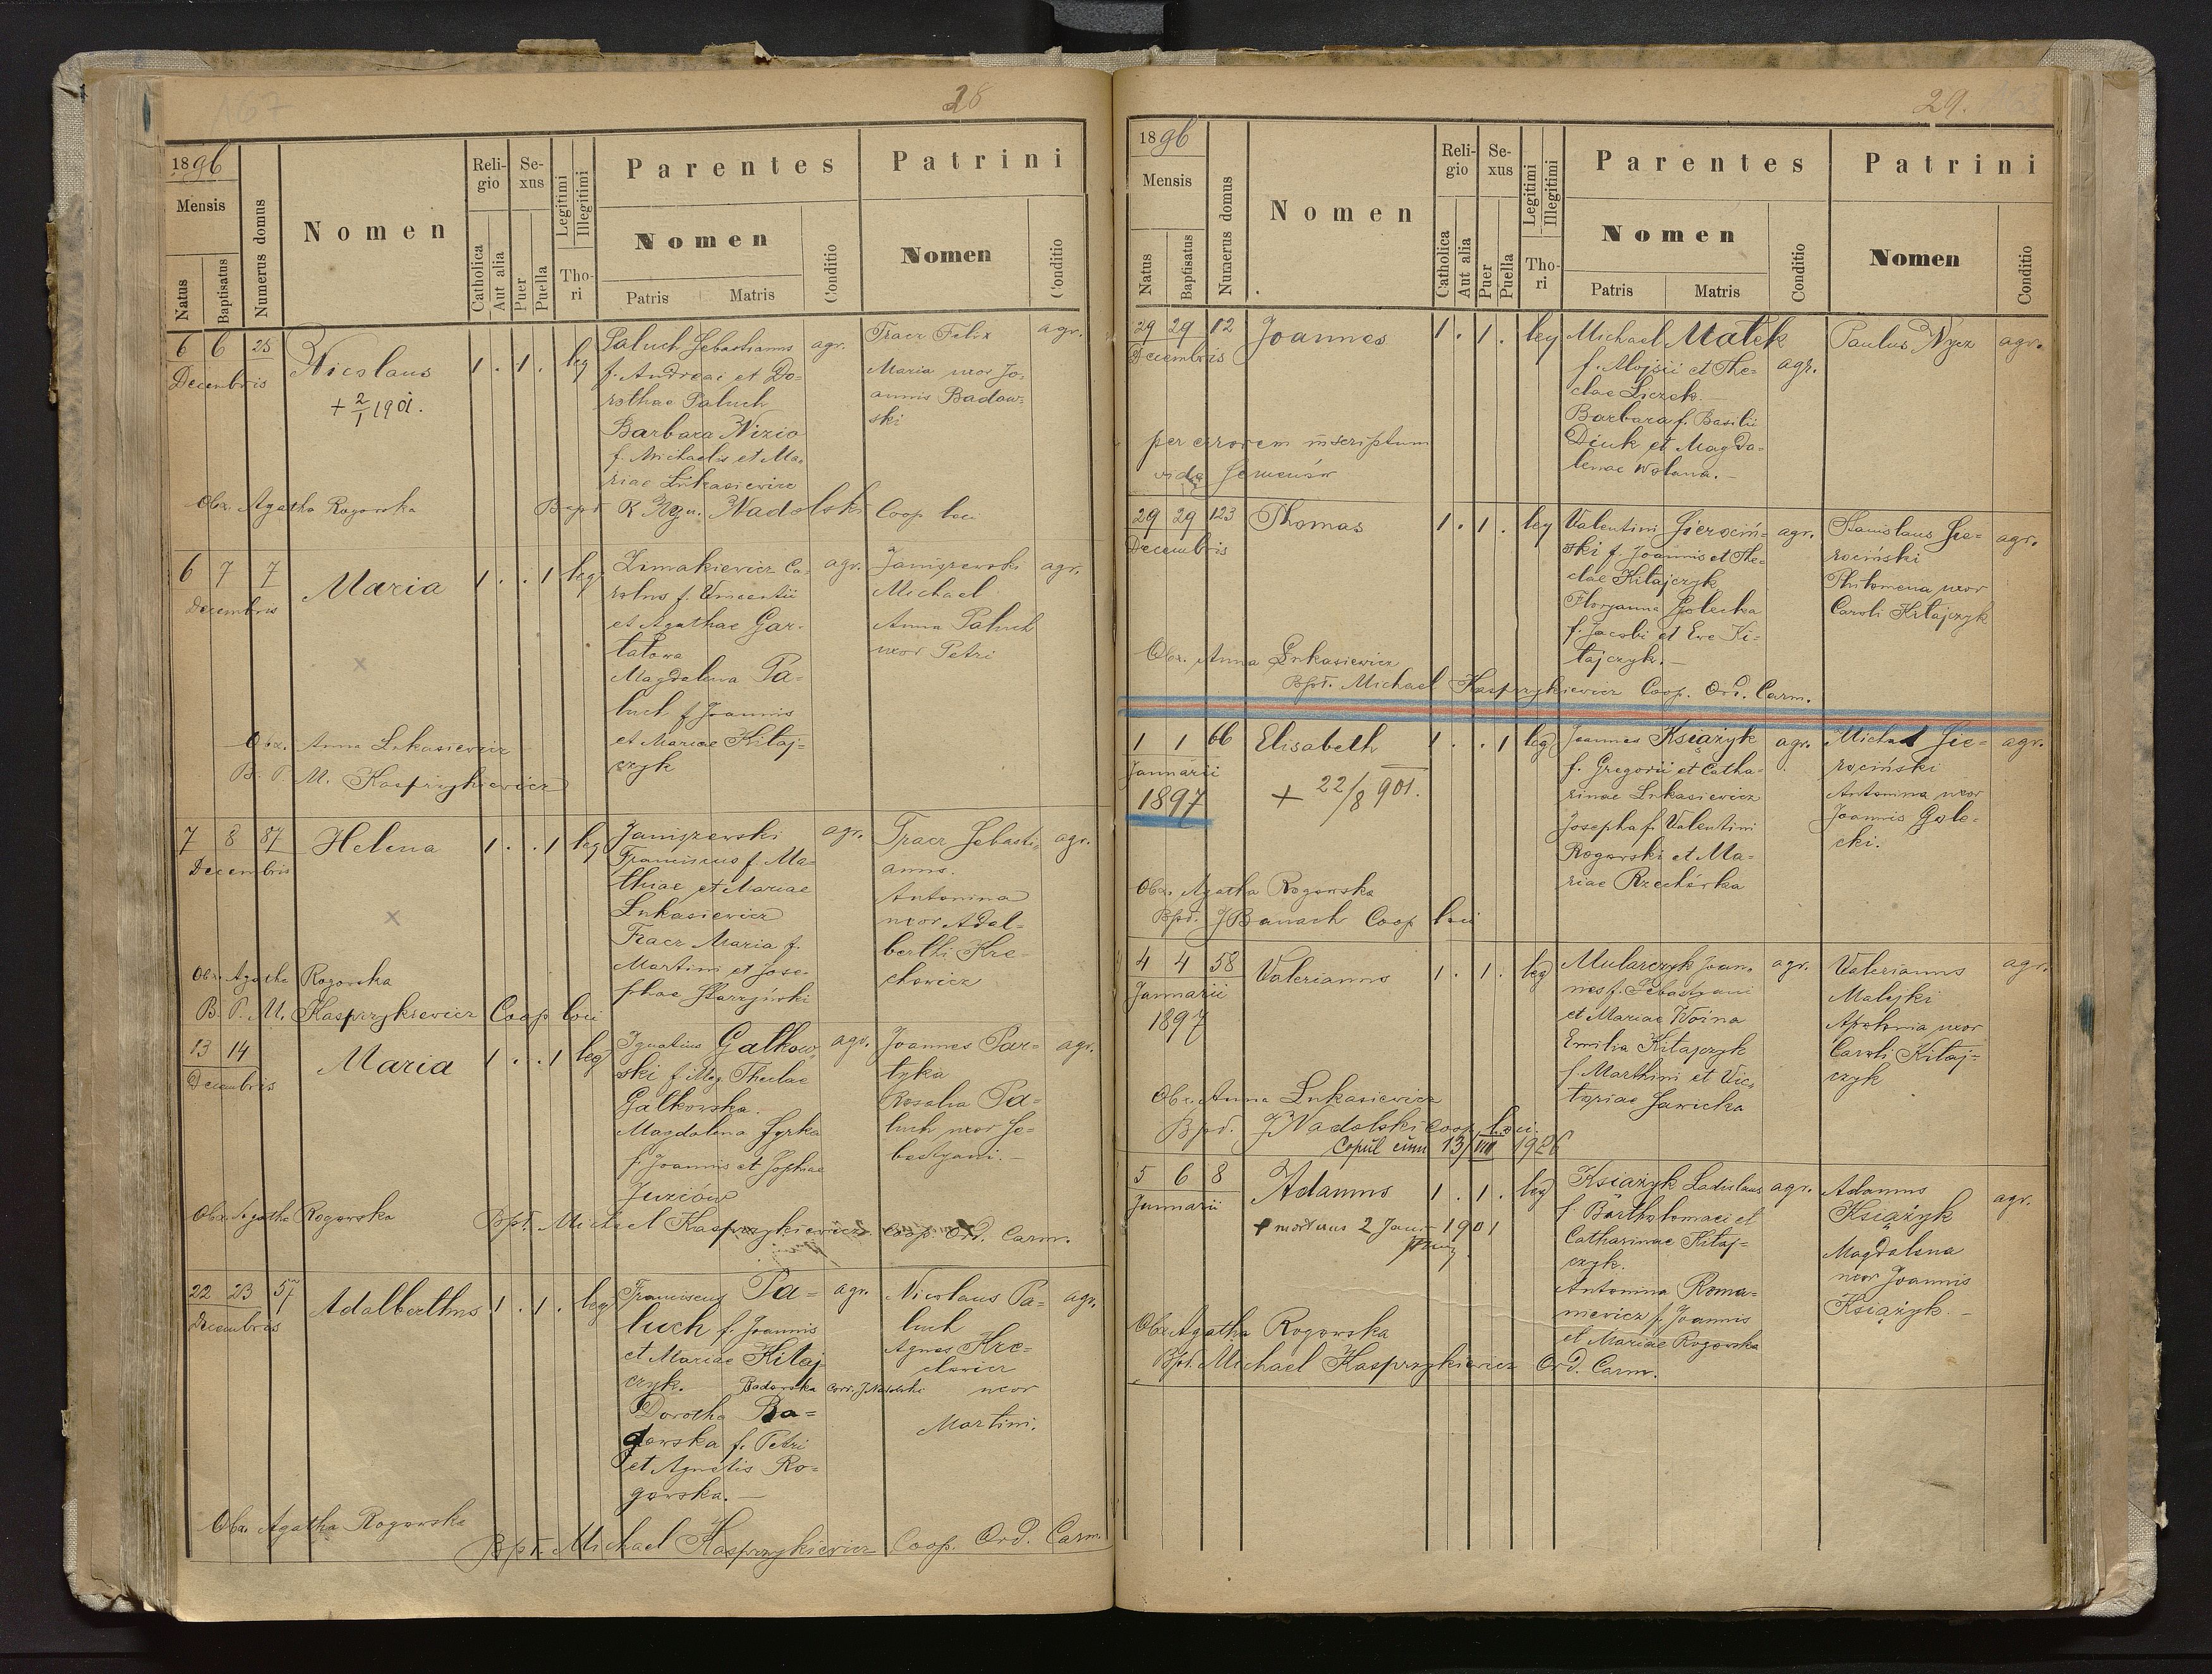 28
1896
Mensis
Natus
Baptisatus
Numerus domus
Nomen
Religio
Catholica
Aut alia
Sexus
Puer
Puella
Legitimi
Illegitimi
Thori
Parentes
Nomen
Patris
Matris
Conditio
Patrini
Nomen
Conditio
6 6 25 Nicolaus 1 . 1 . leg
Decembris
+ 2/1 1901.
Paluch Sebastianus agr.
f. Andreai et Do=
rothae Paluch
Barbara Nizio
f. Michaelis et Ma=
riae Lukasiewicz
Tracz Felix agr.
Maria uxor Jo=
annis Badow=
ski
Obs. Agatha Rogowska
Bapt Nadolski Coop loci
6 7 7 Maria 1 . . 1 leg
Decembris
Limakiewicz Ca= agr.
rolus f. Vincentii
et Agathae Gar=
latowa
Magdalena Pa=
luch f Joannis
et Mariae Kitaj=
czyk
Janiszewski agr.
Michael
Anna Paluch
uxor Petri
Obs. Anna Lukasiewicz
B. P. M. Kasprzykiewicz
7 8 87 Helena 1 . . 1 leg
Decembris
Janiszewski agr.
Franciscus f. Ma=
thiae et Mariae
Lukasiewicz
Tracz Maria f.
Martini et Jose=
phae Skarzyński
Tracz Sebasti= agr.
anus.
Antonina
uxor Adal=
berthi Kre=
chowicz
Obs. Agatha Rogowska
B. P. M. Kasprzykiewicz Coop loci
13 14 Maria 1 . . 1 leg
Decembris
Ignatius Galkow= agr.
ski f. Theclae
Galkowska.
Magdalena Syrka
f. Joannis et Sophiae
Juziów
Joannes Par= agr.
tyka
Rosalia Pa=
luch uxor Se=
bastyani.
Obs. Agatha Rogowska
Bpt. Michael Kasprzykiewicz Coop. Ord. Carm.
22 23 57 Adalberthus 1 . 1 . leg
Decembris
Franciscus Pa= agr.
luch f. Joannis
et Mariae Kitaj
czyk.
Badowska Corr. J Nadolski
Dorotha Ba=
dowska f. Petri
et Agnetis Ro=
gowska.
Nicolaus Pa= agr.
luch
Agnes Kre=
chowicz
uxor
Martini.
Obs. Agatha Rogowska
Bpt. Michael Kasprzykiewicz Coop. Ord. Carm.
29.
1896
Mensis
Natus
Baptisatus
Numerus domus
Nomen
Religio
Catholica
Aut alia
Sexus
Puer
Puella
Legitimi
Illegitimi
Thori
Parentes
Nomen
Patris
Matris
Conditio
Patrini
Nomen
Conditio
29 29 12 Joannes 1 . 1 . leg
Decembris
Michael Małek
f. Alojsii et The= agr.
clae Liczek.
Barbara f. Basilii
Diuk et Magda=
lenae Wolana.
Paulus Nycz agr.
per errorem inscriptum
vide Semenów
29 29 123 Thomas 1 . 1 . leg
Decembris
Valentini Sierociń= agr.
ski f. Joannis et The=
clae Kitajczyk
Floryanna Golecka
f. Jacobi et Eve Ki=
tajczyk.
Stanislaus Sie= agr.
rociński
Philomena uxor
Caroli Kitajczyk
Obs. Anna Lukasiewicz
Bpt. Michael Kasprzykiewicz Coop. Ord. Carm.
1 1 66 Elisabeth 1 . . 1 leg
Januarii
1897
+ 22/8 901.
Joannes Książyk agr.
f. Gregorii et Catha=
rinae Lukasiewicz
Josepha f. Valentini
Rogowski et Ma=
riae Rzechórka
Michał Sie= agr.
rociński
Antonina uxor
Joannis Gole=
cki.
Obs. Agatha Rogowska
Bpt. J Banach Coop loci
4 4 58 Valerianus 1 . 1 . leg
Januarii
1897
Mularczyk Joan= agr.
nes f. Sebastyani
et Mariae Woina
Emilia Kitajczyk
f. Marthini et Vic=
toriae Sawicka
Valerianus agr.
Malejki
Apolonia uxor
Caroli Kitaj=
czyk
Obs. Anna Lukasiewicz
Bpd. J Nadolski coop. loci.
Copul cum 13/VIII 1926
5 6 8 Adamus 1 . 1 . leg
Januarii
+ mortuus 2 Jan. 1901
Książyk Ladislaus agr.
f. Bartholomaei et
Catharinae Kitaj=
czyk.
Antonina Roma=
niewicz f. Joannis
et Mariae Rogowska
Adamus agr.
Książyk
Magdalena
uxor Joannis
Książyk.
Obs. Agatha Rogowska
Bpt. Michael Kasprzykiewicz Ord. Carm.